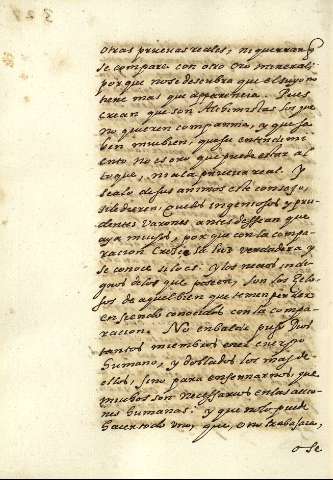 otras pruevas reales, ni querran q
se compare con otro oro mineral,
porque no se descubra que el suyo no
tiene mas que apparencia. Pues
crean que son Alchimistas los que
no quieren compannia, y que sa
ben muibien, que su entendimi
ento no es oro que puede estar al
toque, ni a la prueva real. Y
sealo de sus animos este consejo,
si le dieren, Que los ingeniosos y pru
dentes varones antes dessean que
aya muchos, por que con la compa
racion crece la luz verdadera y
se conoce si lo es. Y los menos indi
gnos de los que parten, son los Zelo
sos de aquel bien que temen perder
en siendo conocidos con la compa
racion. No enbalde puso Dios
tantos miembros en el cuerpo
humano, y doblados los mas de
ellos, sino para ensennarnos, que
muchos son necessarios en las accio
nes humanas: y que no lo puede
hacer todo uno, que, o no trabaxe,
o se